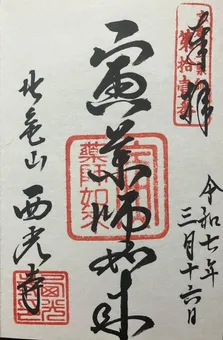 奉拝
令和七年
三月十六日
寅薬師如来
薬師如来
北亀山
西光寺